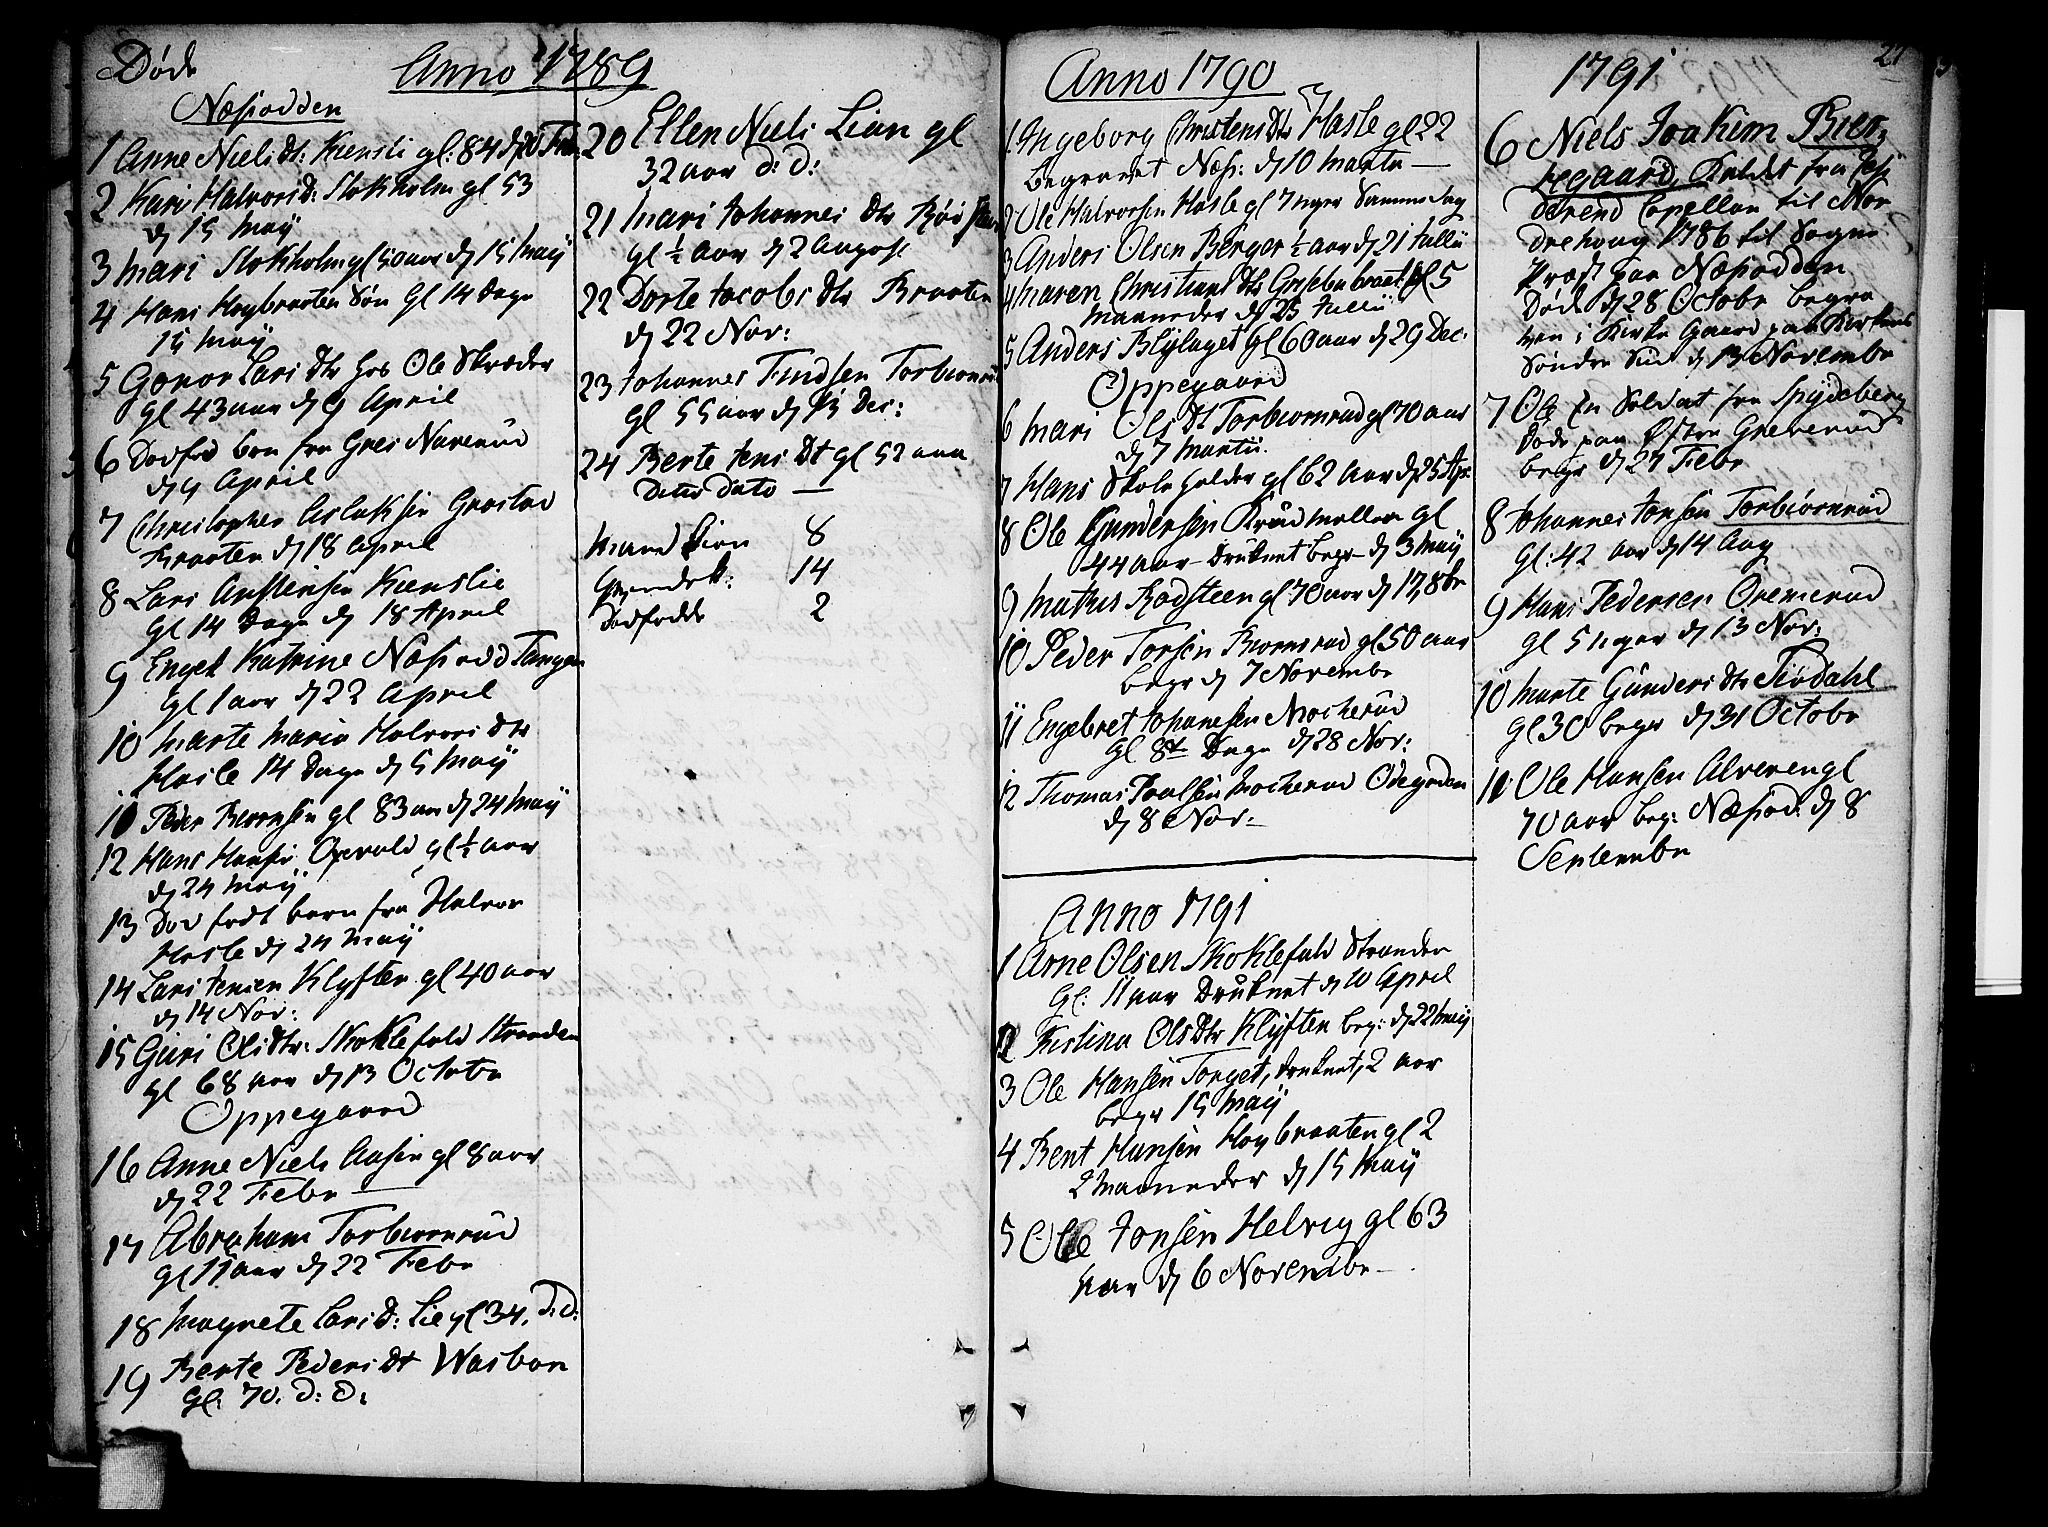 Døde
Anno 1789
Næsodden
1 Anne Niels dt: Kiensli gl: 84 d 20 Febr
2 Kari Halvors d: Stokholm gl 53
d 15 Maÿ
3 Mari Stokholm gl 50 aar d 15 Maÿ
4 Hans Høybraaten Søn gl 14 Dage
15 Maÿ
5 Gonor Lars dtr hos Ole Skræder
gl 43 aar d 9 April
6 Dødfød barn fra Greis Narerud
d 9 April
7 Christopher Aslaksen Grostad
Braaten d 18 April
8 Lars Anstensen Kienslie
gl 14 Dage d 18 April
9 Engel Katrine Næsodd Tangen
gl 1 aar d 22 April
10 Marte Maria Halvors dtr
Hasle 14 Dage d 5 Maÿ
11 Peder Biørnsen gl 83 aar d 24 Maÿ
12 Hans Hansen Opvold gl ½ aar
d 24 Maÿ
13 Død født barn fra Halvor
Hasle d 24 Maÿ
14 Lars Jensen Klyften gl 40 aar
d 14 Nov:
15 Guri Ols dtr: Skoklefald Stranden
gl 68 aar d 13 Octobr
Oppegaard
16 Anne Niels Aasen gl 8 aar
d 22 Febr
17 Abraham Torbiørnrud
gl 11 aar d 22 Febr
18 Magrete Lars d: Lie gl 34. d: d:
19 Berte Peders dt Wasbon
gl: 70. d: d:
20 Ellen Niels Lian gl
32 aar d: d:
21 Mari Johannes dtr
gl ½ aar d 2 August
22 Dorte Jacobs dtr Braaten
d 22 Nov:
23 Johannes Findsen Torbiørnrud
gl 55 aar d 13 Dec:
24 Berte Jens dt gl 52 aar
Dito Dato —
Mand Kiøn 8
Qvindek: 14
Dødfødde 2
Anno 1790
1 Ingeborg Christens dtr Hasle gl 22
begravet Næs: d 10 Martii —
2 Ole Halvorsen Hasle gl 7 uger Samme dag
3 Anders Olsen Berger ½ aar d 21 Julii
4 Maren Christians dtr Gresebubraat gl 5
Maaneder d 25 Julii
5 Anders Blylaget gl 60 aar d 29 Dec:
Oppegaard
6 Mari Ols dt Torbiørnrud gl 70 aar
d 7 Martii.
7 Hans Skoleholder gl 62 aar d 25 Apr:
8 Ole Gundersen Krudmøllen gl
44 aar - Druknet begr d 3 Maÿ
9 Matis Rodsteen gl 70 aar d 17 8br
10 Peder Torsen Biørnsrud gl 50 aar
begr d 7 Novembr
11 Engebret Johannesen Mocherud
gl 8te Dage d 28 Nov:
12 Thomas Poulsen Mocherud Ødegrden
d 8 Nov:
Anno 1791
1 Arne Olsen Skoklefald Stranden
gl: 11 aar Druknet d 10 April
2 Kistina Ols dtr Klÿften beg: d 22 Maÿ
3 Ole Hansen Torget, druknet, 2 aar
begr 15 Maÿ
4 Bent Hansen Høybraaten gl 2
2 Maaneder d 15 Maÿ
5 Ole Jonsen Helvig gl 63
aar d 6 Novembr —
1791
21
6 Niels Joakim Bier-
regaard, Kaldet fra
Capellan til Nor
drehoug 1786 til Sogne
Præst paa Næsodden
Døde d 28 Octobr begra
ven i Kirke Gaard paa Kirkens
Søndre Side d 13 Novembr
7 Ole En Soldat fra Spÿdeberg
døde paa Østre Greverud
begr d 27 Febr
8 Johannes Jonsen Torbiørnrud
gl: 42 aar d 14 Aug
9 Hans Pedersen Oremerud
gl 5 uger d 13 Nov:
10 Marte Gunders dtr Siødahl
gl 30 begr d 31 Octobr
11 Ole Hansen Alveren gl
70 aar beg: Næsod: d 8
Septembr